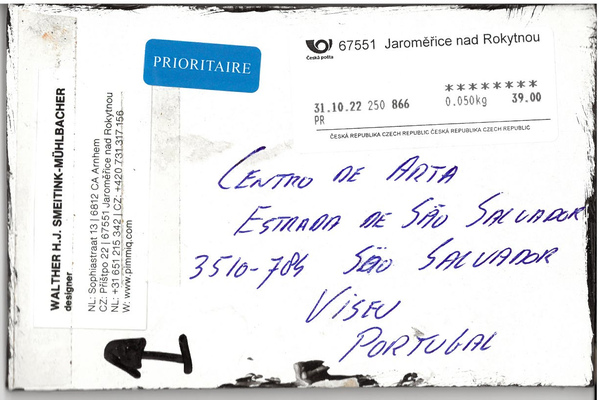 PRIORITAIRE
Česká pošta
67551 Jaroměřice nad Rokytnou
********
31.10.22 250 866 0.050kg 39.00
PR
ČESKÁ REPUBLIKA CZECH REPUBLIC ČESKÁ REPUBLIKA CZECH REPUBLIC
WALTHER H.J. SMEITINK-MÜHLBACHER
designer
NL: Sophiastraat 13 | 6812 CA Arnhem
CZ: Příštpo 22 | 67551 Jaroměřice nad Rokytnou
NL: +31 651 215 342 | CZ: +420 731 317 156
W: www.pimmiq.com
CENTRO DE ARTA
ESTRADA DE SÃO SALVADOR
3510-784 SÃO SALVADOR
VISEU
PORTUGAL